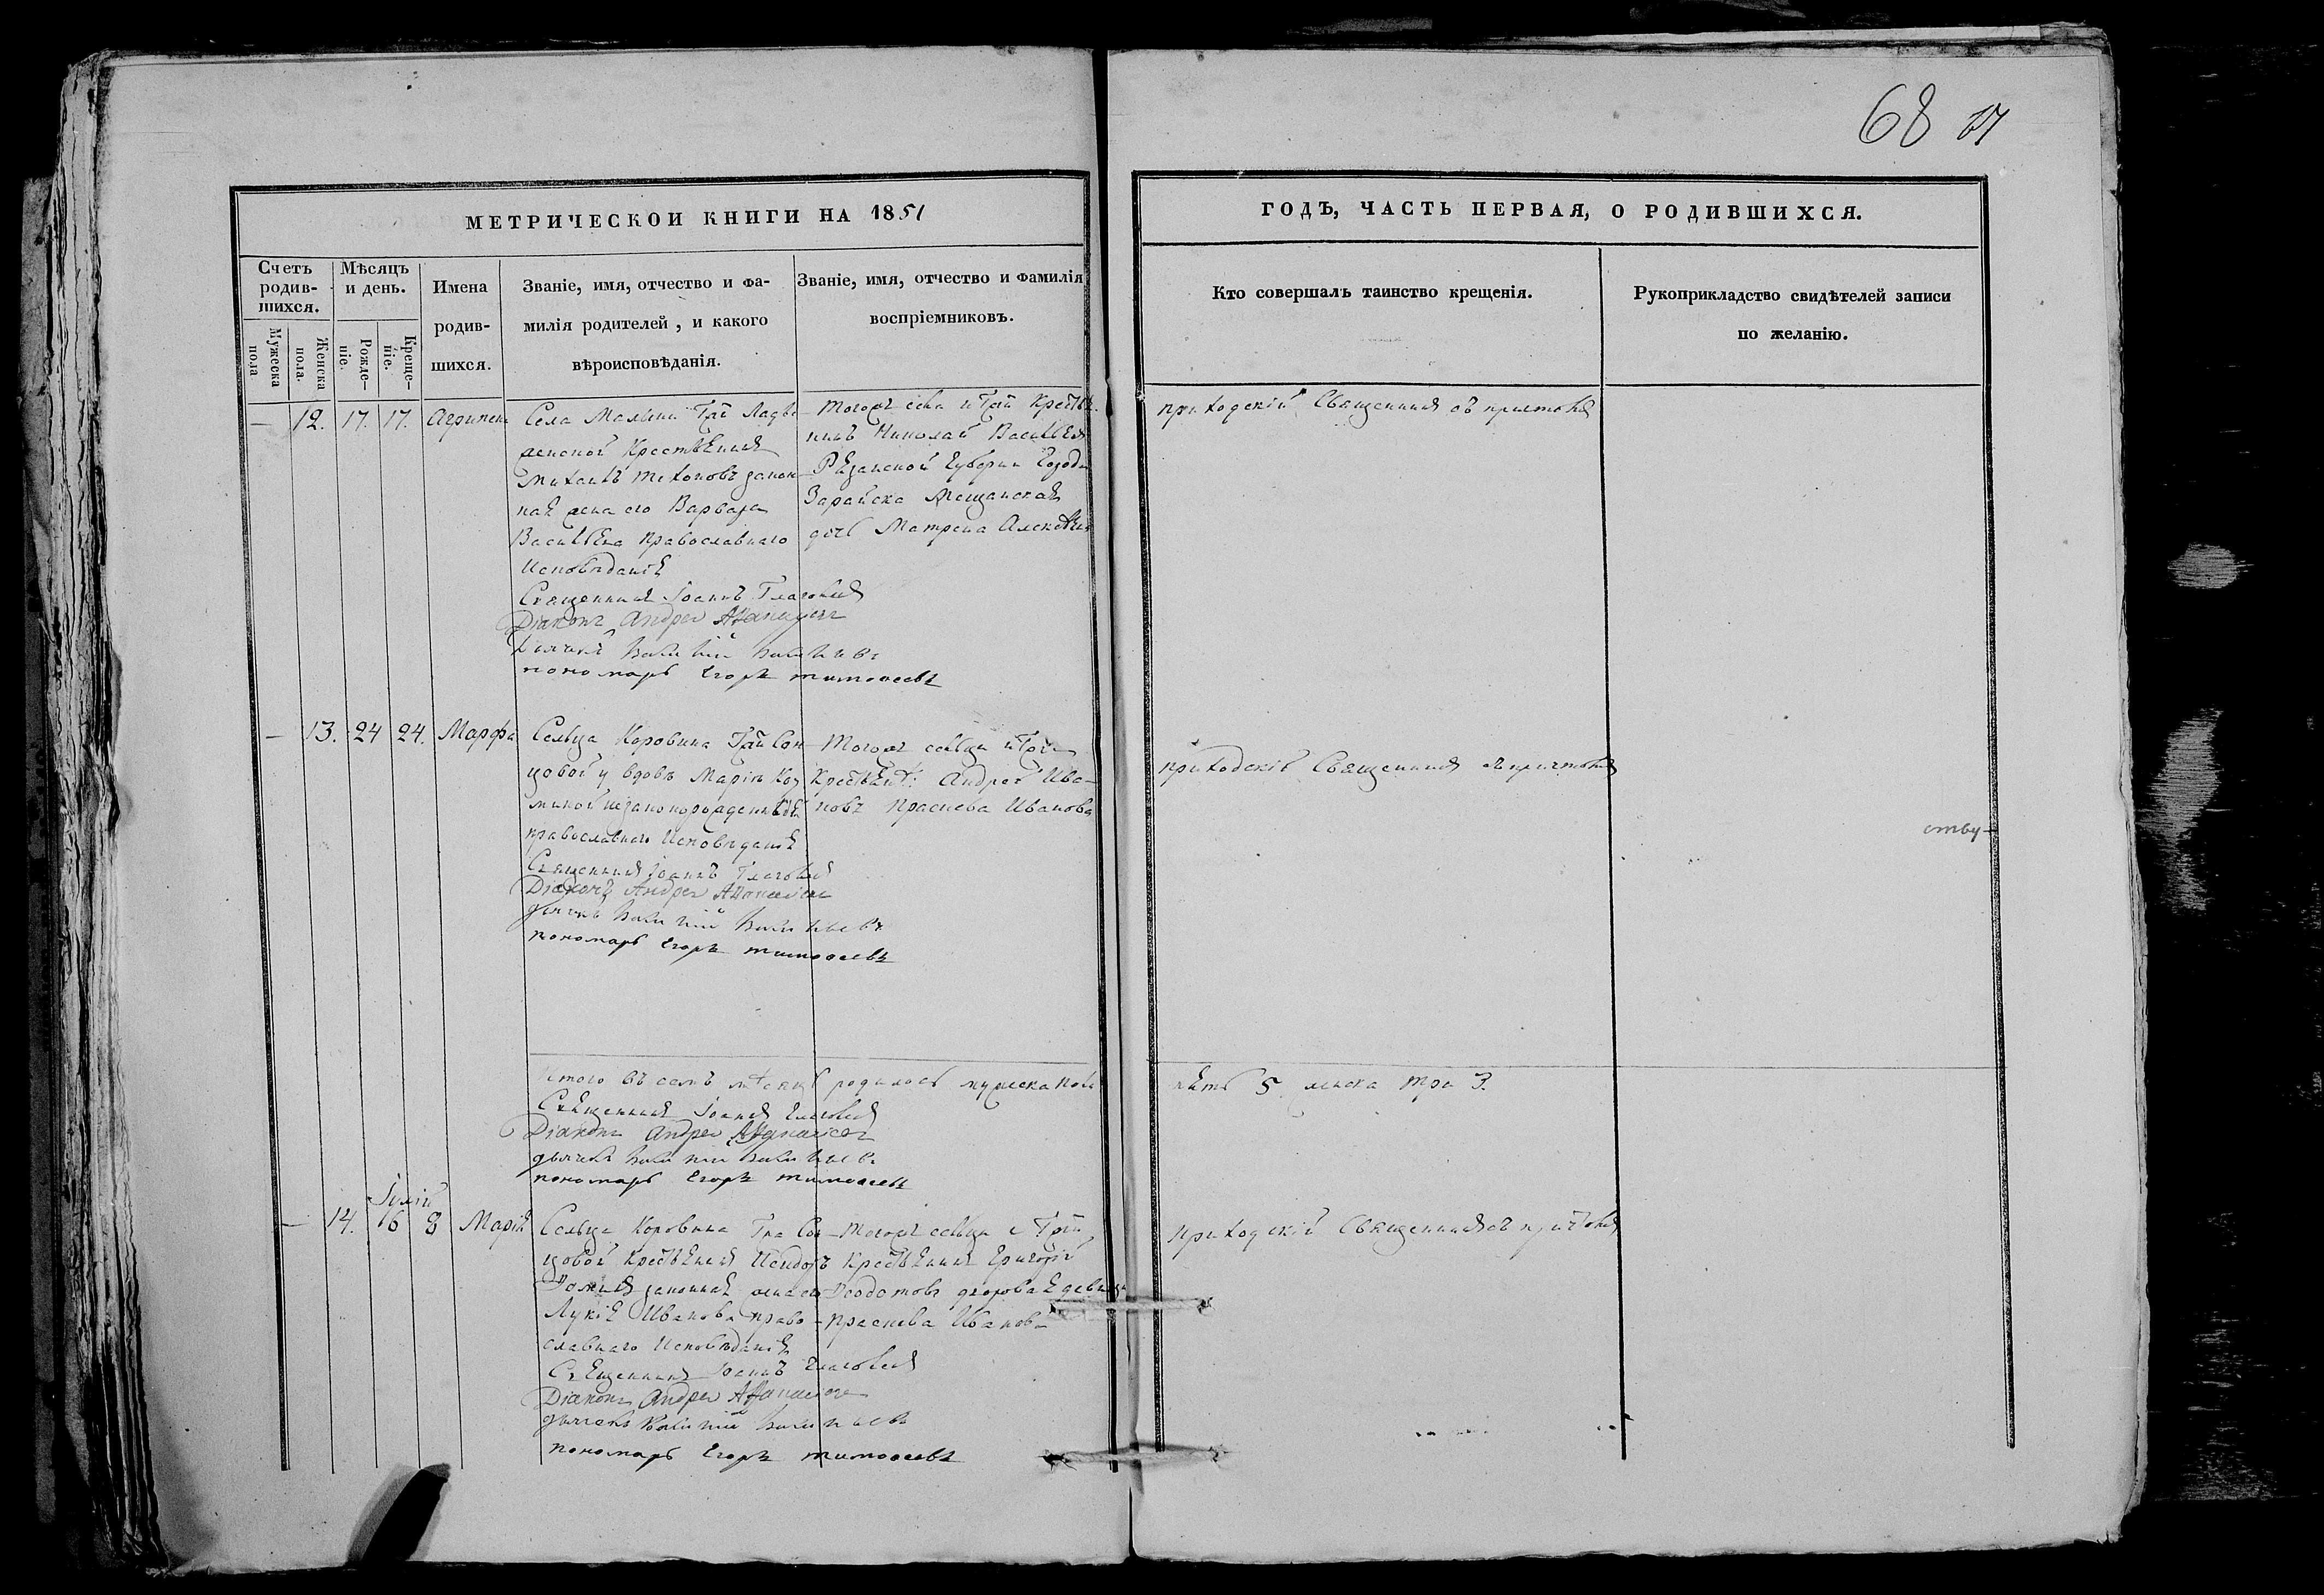 68
МЕТРИЧЕСКОИ КНИГИ НА 1851
ГОДЪ, ЧАСТЬ ПЕРВАЯ, О РОДИВШИХСЯ.
Счетъ родив-шихся.
Мужеска пола
Женска пола.
Мѣсяцъ и день.
Рожде-ніе.
Креще-ніе.
Имена
родив-
шихся.
Званіе, имя, отчество и фа-
милія родителей, и какого
вѣроисповѣданія.
Званіе, имя, отчество и фамилія
воспріемниковъ.
Кто совершалъ таинство крещенія.
Рукоприкладство свидѣтелей записи
по желанію.
— 12. 17. 17. Агрипена
Села Малина
женской Крестьянинъ
Михаилъ Тихоновъ закон-
ная жена его Варвара
Васильева православнаго
исповѣданія
Священникъ Іоаннъ
Діаконъ Андрей Афанасьевъ
дьячекъ
пономарь Егоръ тимофеевъ
Тогожъ села и Крестья-
нинъ Николай Васильевъ
Рязанской Губерніи Города
Зарайска Мещанская
дочь Матрена Алексѣева
приходскій Священникъ съ причтомъ
— 13. 24 24. Марфа
Сельца Коровина Гжи Сон-
цовой у вдовы Маріи Коз-
миной незаконорожденная
православнаго исповѣданія
Священникъ Іоаннъ
Діаконъ Андрей Афанасьевъ
дьячекъ
пономарь Егоръ тимофеевъ
Тогожъ сельца и Гжи
Андрей Ива-
новъ Праскева Иванова
приходскій Священникъ съ причтомъ
ству-
Итого въ семъ мѣсяцѣ родилось мужеска пола
пять 5 женска три 3.
Священникъ Іоаннъ
Діаконъ Андрей Афанасьевъ
дьячекъ
пономарь Егоръ тимофеевъ
Іюлій
— 14. 6 8 Марія
Сельца Коровина Гжи Сон-
цовой Крестьянинъ Исидоръ
законная жена его
Лукія Иванова право-
славнаго исповѣданія
Священникъ Іоаннъ
Діаконъ Андрей Афанасьевъ
дьячекъ
пономарь Егоръ тимофеевъ
Тогожъ сельца и Гжи
Крестьянинъ Григорій
Феодотовъ дворовая девица
Праскева Иванова
приходскій Священникъ съ причтомъ